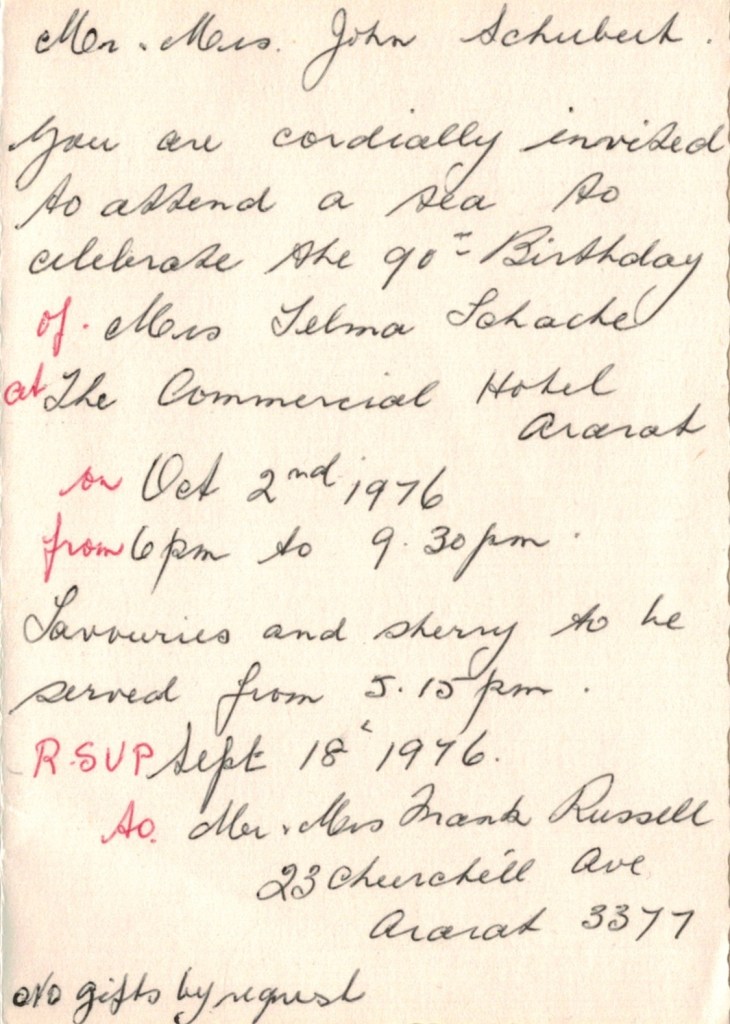 Mr. Mrs. John Schubert.
You are cordially invited
to attend a tea to
celebrate the 90th Birthday
of. Mrs Selma Schache
at The Commercial Hotel
Ararat
on Oct 2nd 1976
from 6pm to 9.30pm.
Savouries and sherry to be
served from 5.15pm.
R.SVP Sept 18th 1976.
to. Mr. Mrs Frank Russell
23 Churchill Ave
Ararat 3377
No gifts by request